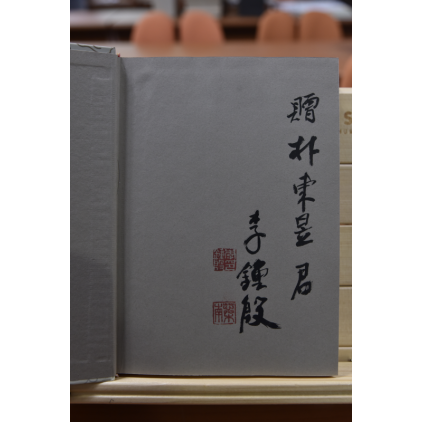 贈
朴東昱君
李鍾殷